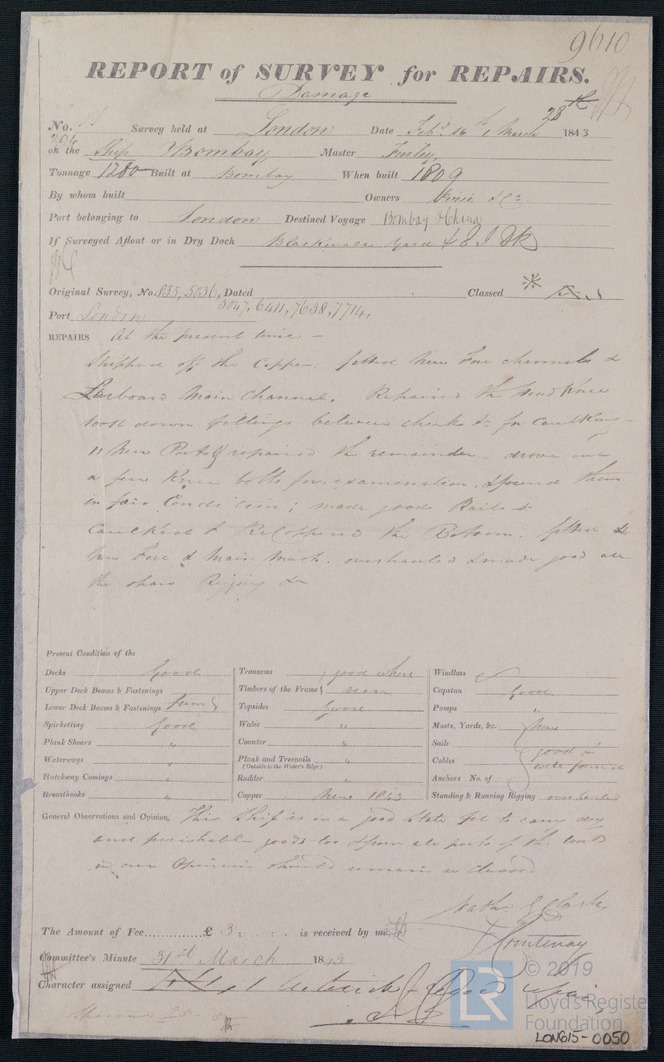 9610
REPORT of SURVEY for REPAIRS.
Damage
28th
No. Survey held at London Date Feb. 16 March 1843
on the Ship Bombay Master Furley
Tonnage 1280 Built at Bombay When built 1809
By whom built Owners & Co.
Port belonging to London Destined Voyage Bombay & China
If Surveyed Afloat or in Dry Dock Blackwall Yard & E I Dk
Original Survey, No 835, 5036, Dated Classed
5047, 6411, 7638, 7714,
Port London
REPAIRS At the present time -
Stripped off the Copper. fitted New Fore channels &
Larboard Main Channel. Repaired the head knee
took down fittings between cheeks &c for Caulking -
11 New Ports & repaired the remainder - drove out
a few Knee bolts for examination & found them
in fair Condition; made good Rails &
Caulked & ReCoppered the Bottom. fitted
New Fore & Main Mast. overhauled & made good all
the spars Rigging &c
Present Condition of the
Decks Good Transoms good where Windlass
Upper Deck Beams & Fastenings Timbers of the Frame seen Capstan Good
Lower Deck Beams & Fastenings Topsides Good Pumps "
Spirketting Good Wales " Masts, Yards, &c.
Plank Shears " Counter " Sails good &
Waterways " Plank and Treenails " Cables well found
(Outside to the Water's Edge)
Hatchway Comings " Rudder " Anchors No. of
Breasthooks " Copper New 1843 Standing & Running Rigging overhauled
General Observations and Opinion, This Ship is in a good State fit to carry dry
and perishable goods to & from all parts of the World
in our Opinion should remain as classed
Nathl G Clarke
The Amount of Fee £ 3 : : is received by me
Courtenay
Committee's Minute 31st March 1843
Character assigned
© 2019
LR
Lloyd's Register
Foundation
LON615-0050